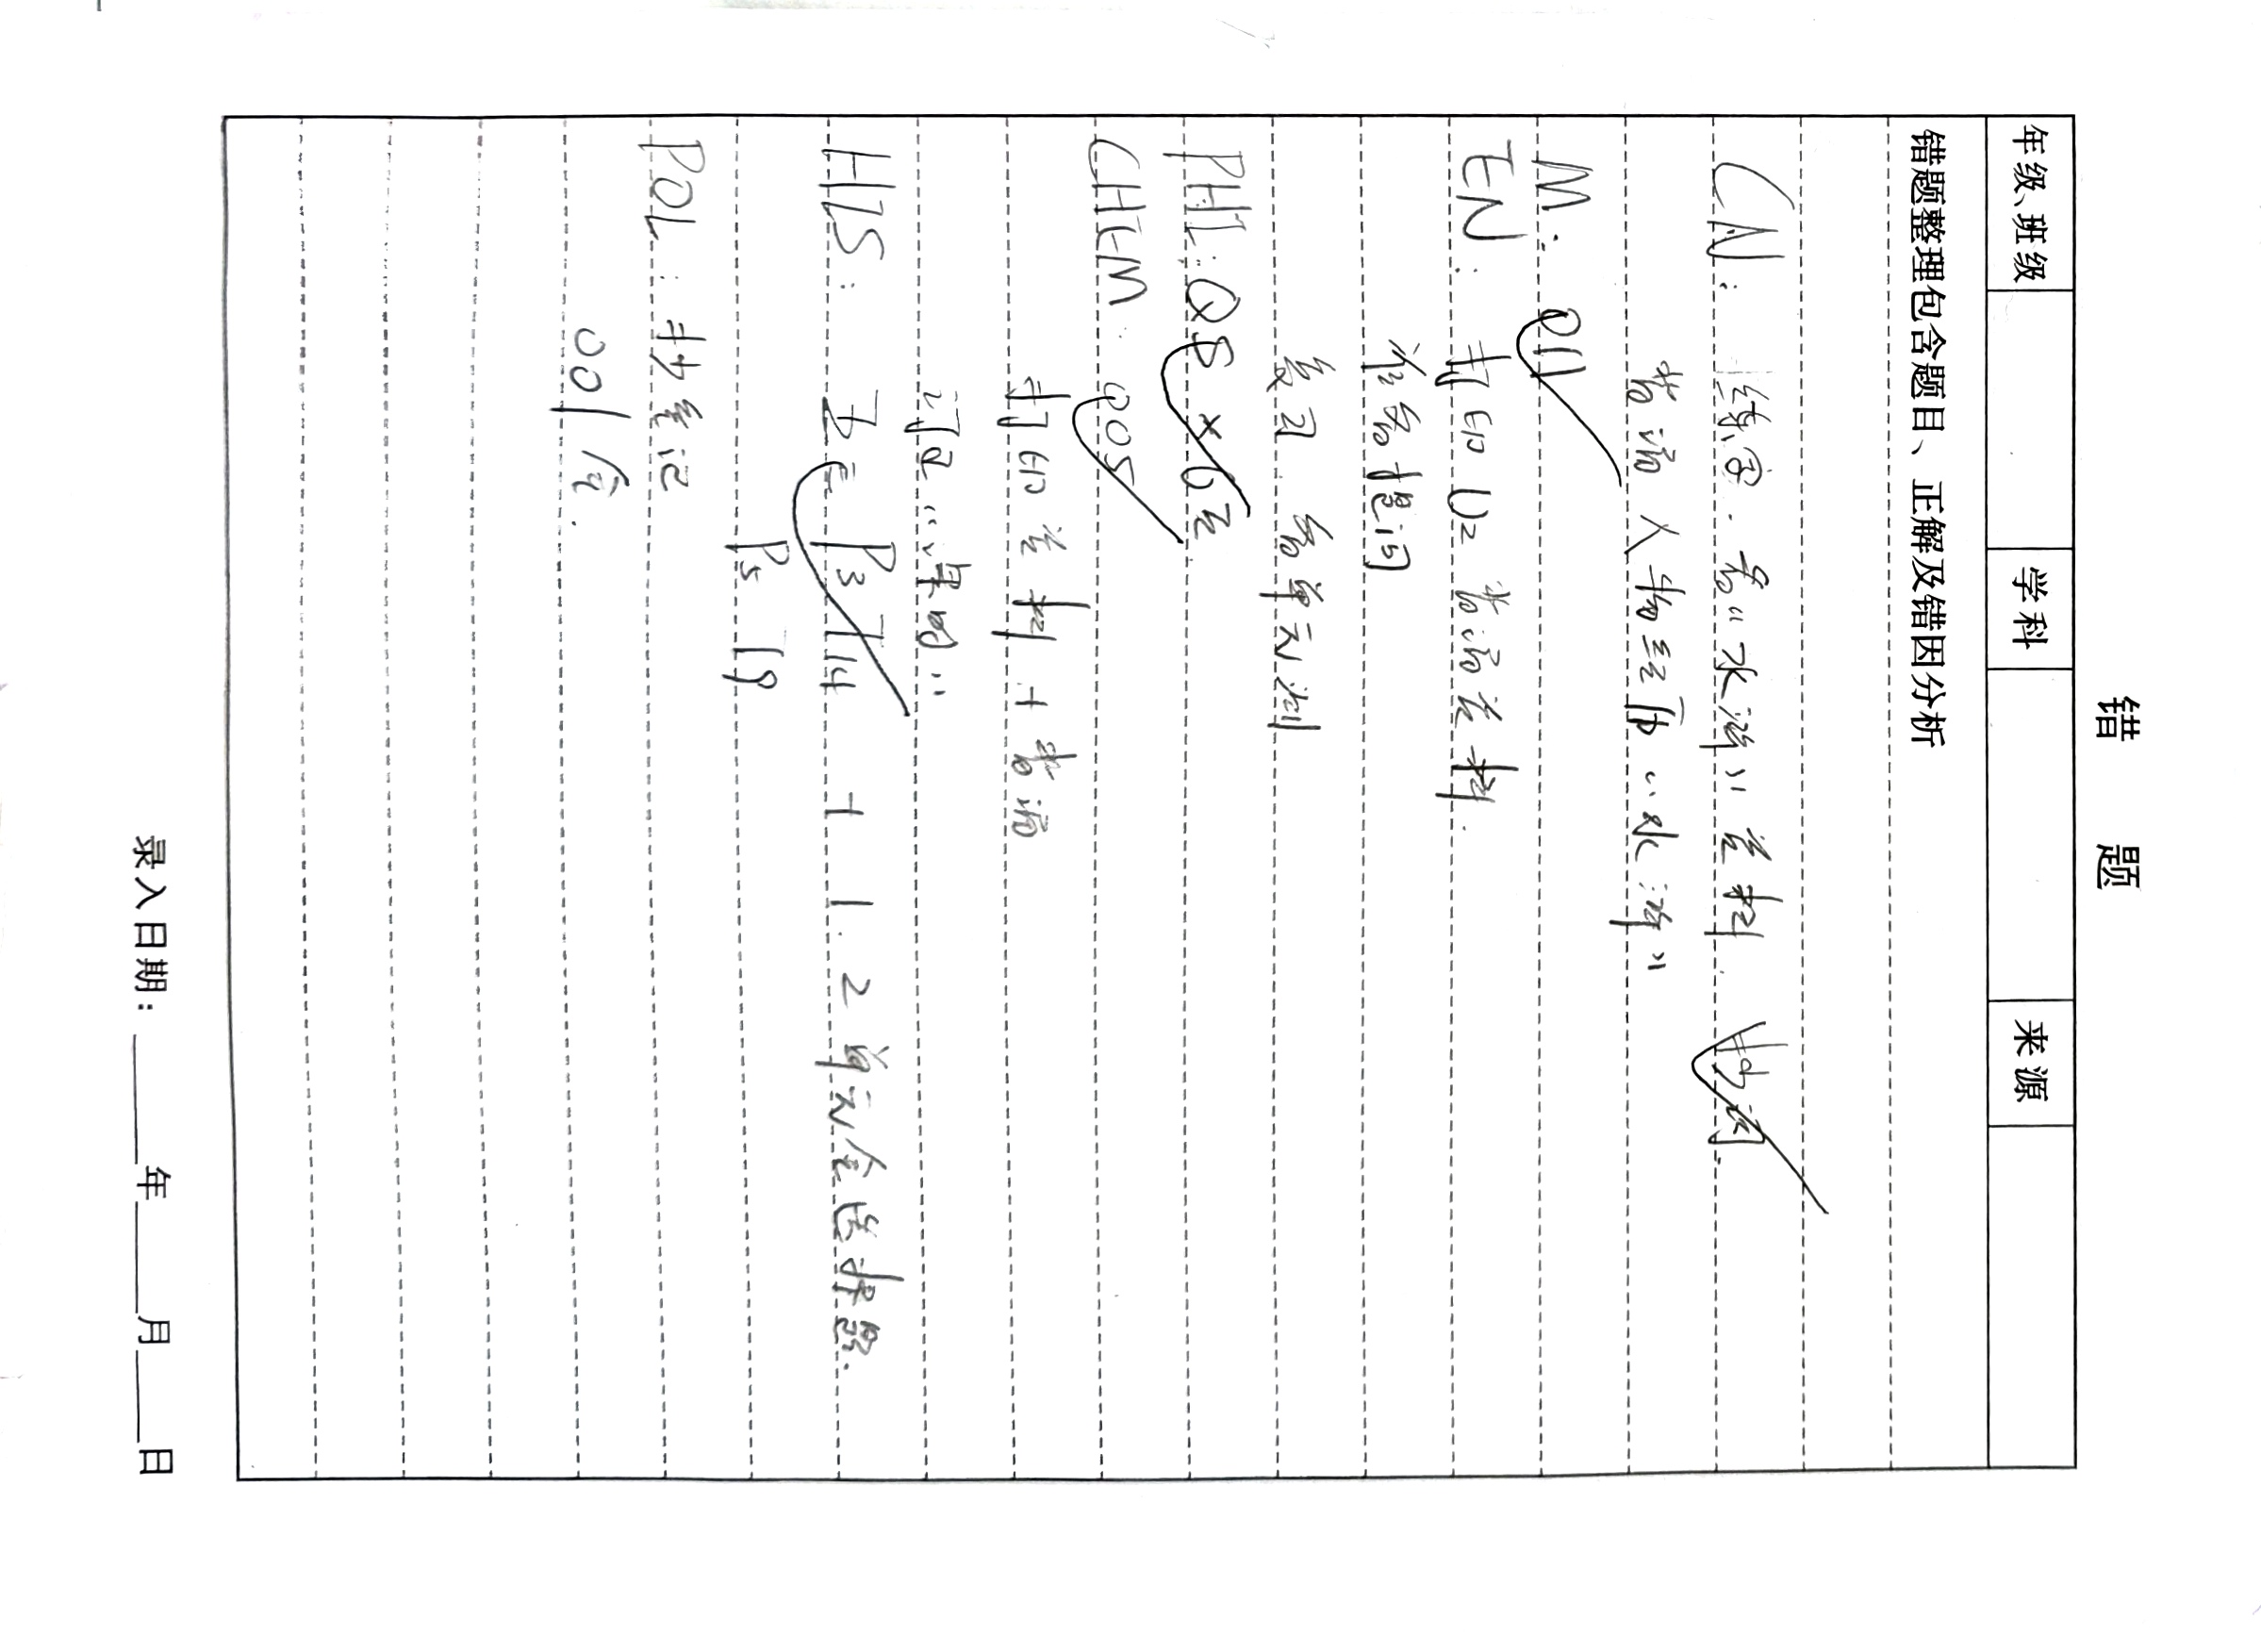 错 题
年级、班级 学科 来源
错题整理包含题目、正解及错因分析
CN: 练字. 看《水浒》资料.
背诵 人物经历《水浒》
M: 011
EN: 打印 U2 背诵资料.
准备提问
复习. 备单元测
PHL: 08 × 6页
CHEM. 005
打印资料 + 背诵
订正
HIS: 7E P3 T14 + 1. 2单元全选择题.
P5 T9
POL: 抄笔记
001 全.
录入日期: 年 月 日